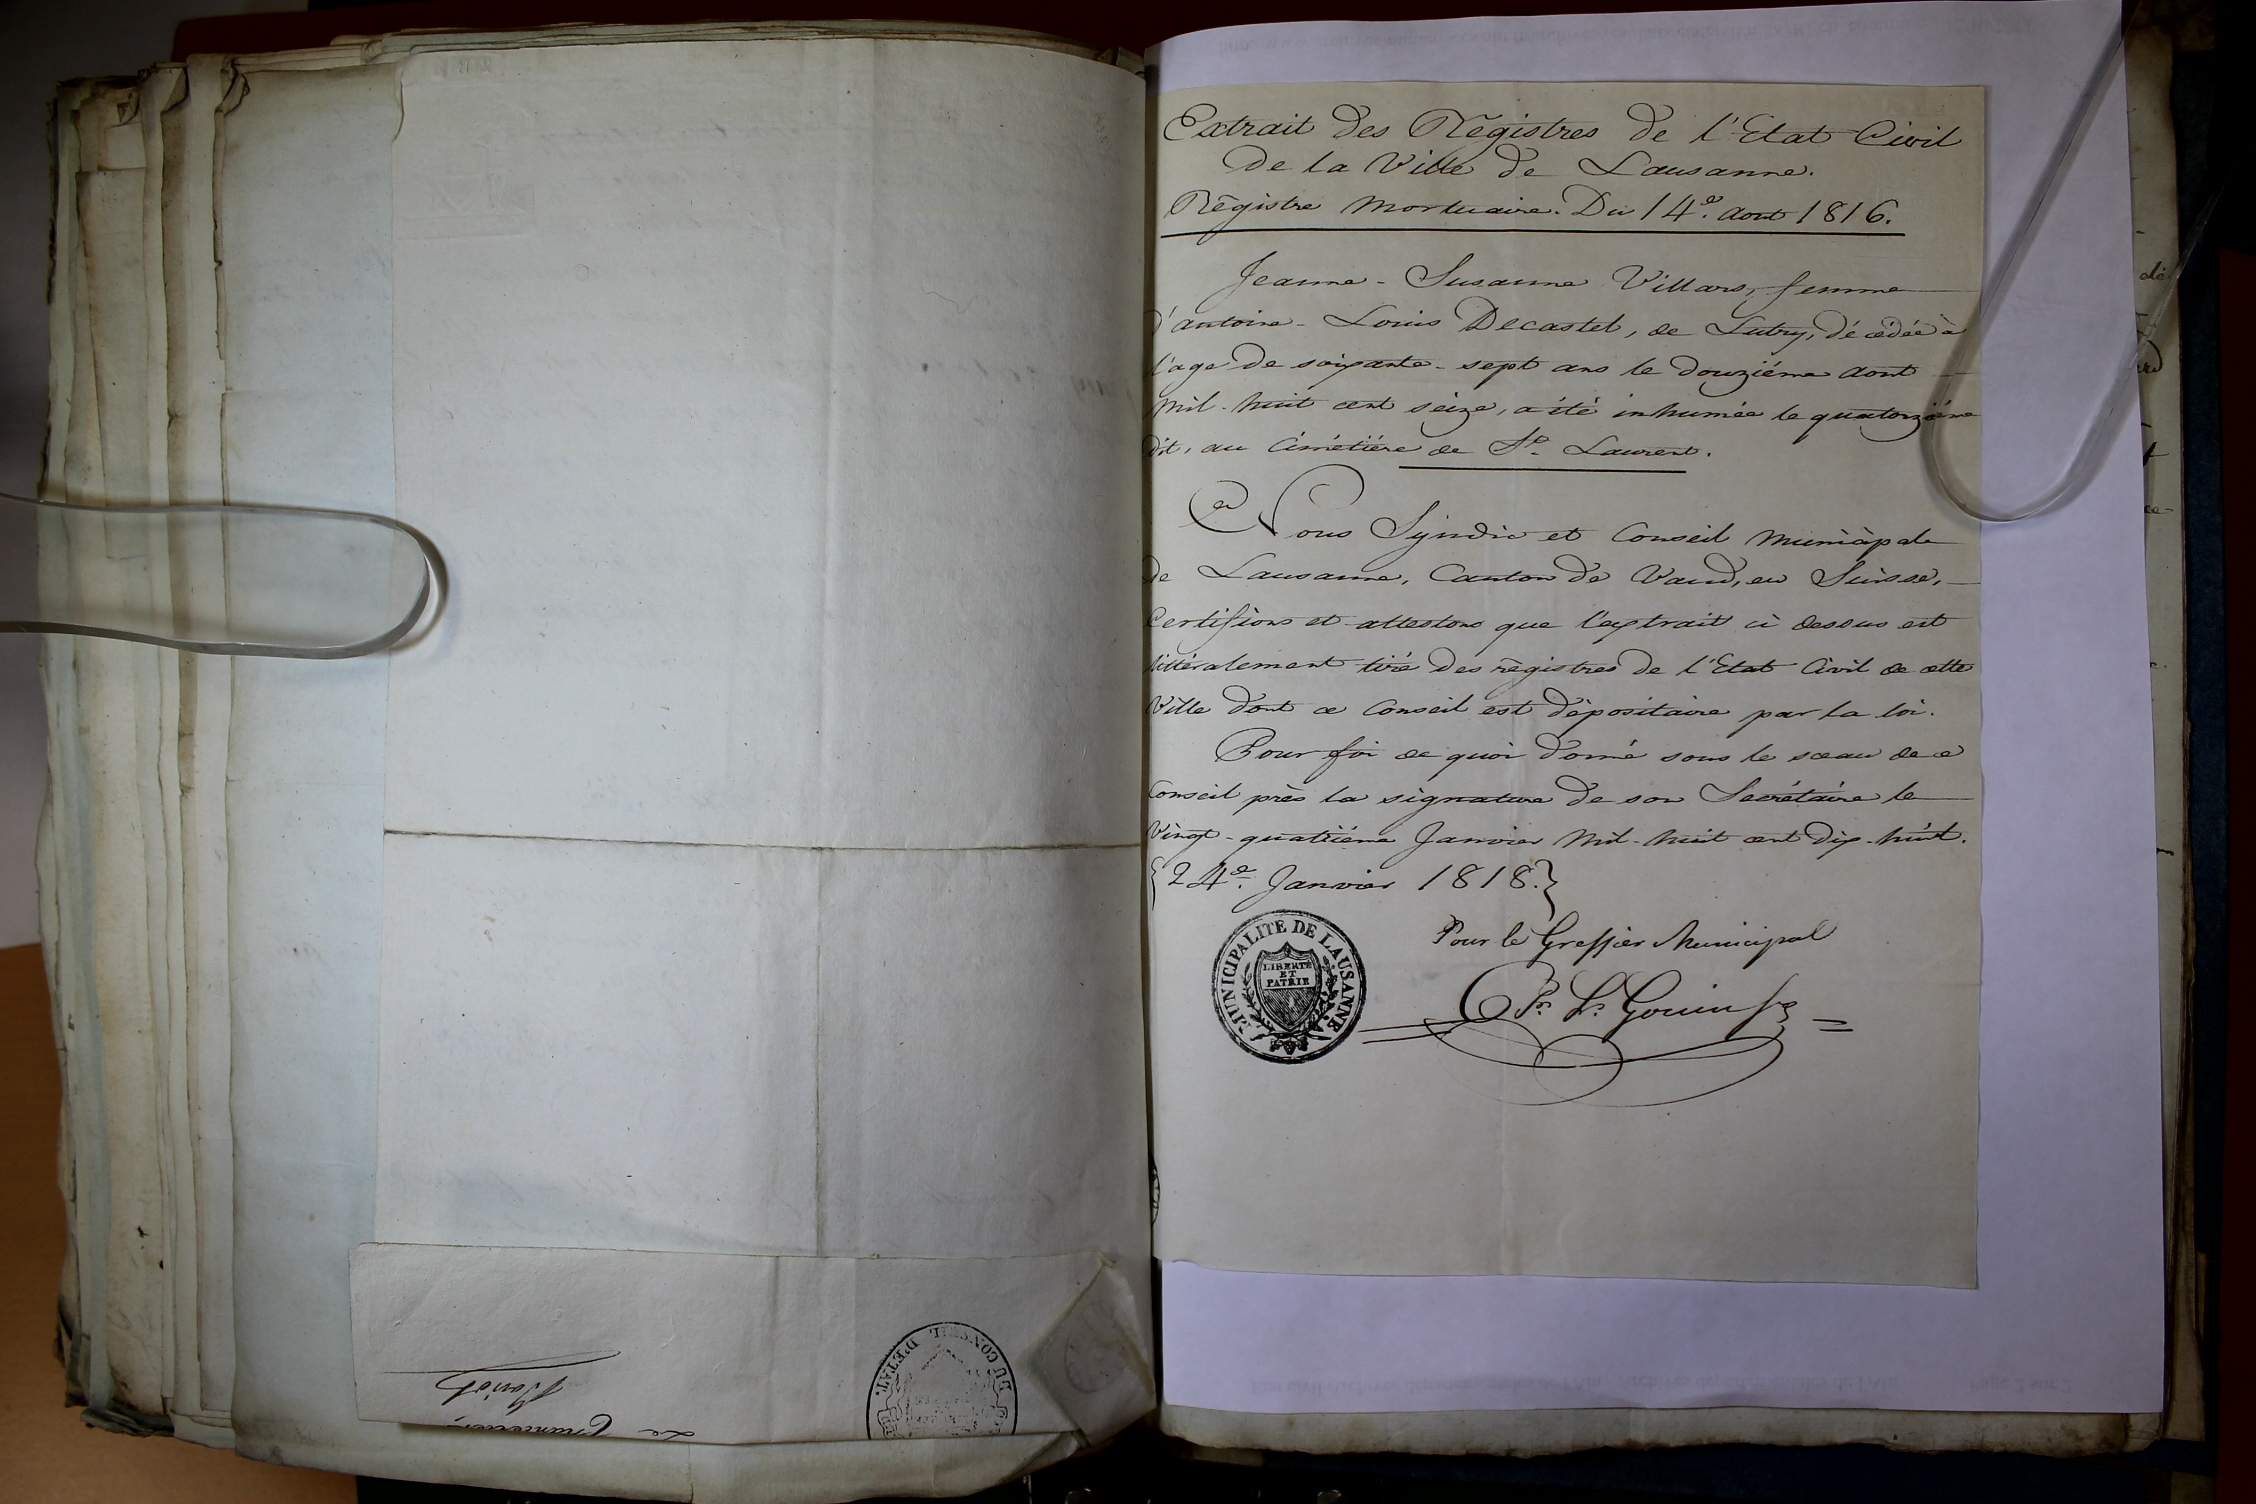 Extrait des Régistres de l'Etat Civil
de la Ville de Lausanne.
Régistre Mortuaire. Du 14e. Aout 1816.
Jeanne-Susanne Villars, femme
d'antoine-Louis Decastel, de Lutry, décédée à
l'age de soixante-sept ans le douziéme Aout
mil-huit cent seize, a été inhumée le quatorziéme
dit, au Cimétiére de St. Laurent.
Nous Syndic et Conseil Municipal
de Lausanne, Canton de Vaud, en Suisse,
Certifions et attestons que l'extrait ci dessus est
littéralement tiré des régistres de l'Etat Civil de cette
Ville dont ce Conseil est dépositaire par la loi.
Pour foi de quoi donné sous le sceau de ce
Conseil près la signature de son Secrétaire le
Vingt-quatriéme Janvier mil-huit cent dix-huit.
{24e. Janvier 1818.}
Pour le Greffier Municipal
MUNICIPALITE DE LAUSANNE
LIBERTE
ET
PATRIE
DU CONSEIL D'ETAT.
Le